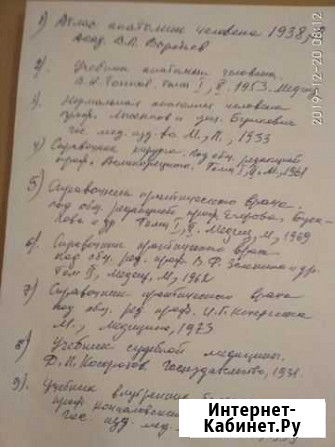 1) Атлас анатомии человека 1938,
акад. В.П. Воробьев
2) Учебник анатомии человека.
В.Н. Тонков. Том I, II. 1953. Медгиз
3) Нормальная анатомия человека
проф. и
Гос. мед. изд-во. М., Л., 1933
4) Справочник хирурга. Под общ. редакцией
проф. Великорецкого. Том I, II, М., 1961
5) Справочник практического врача.
под общ. редакцией проф. Егорова,
и др. Том I, II. Медгиз, М, 1969
6) Справочник практического врача
Под общ. ред. проф. В.Ф. Зеленина и др.
Том II, Медгиз, М, 1962
7) Справочник практического врача
под общ. ред. проф. И.Г. Кочергина
М., Медицина, 1973
8) Учебник судебной медицины.
Д.П. Косоротов Госиздательство, 1931
9) Учебник внутренних
проф. Кончаловский
Гос. изд. мед.
2019-12-20 08:12
Интернет-
Кабинет.РУ